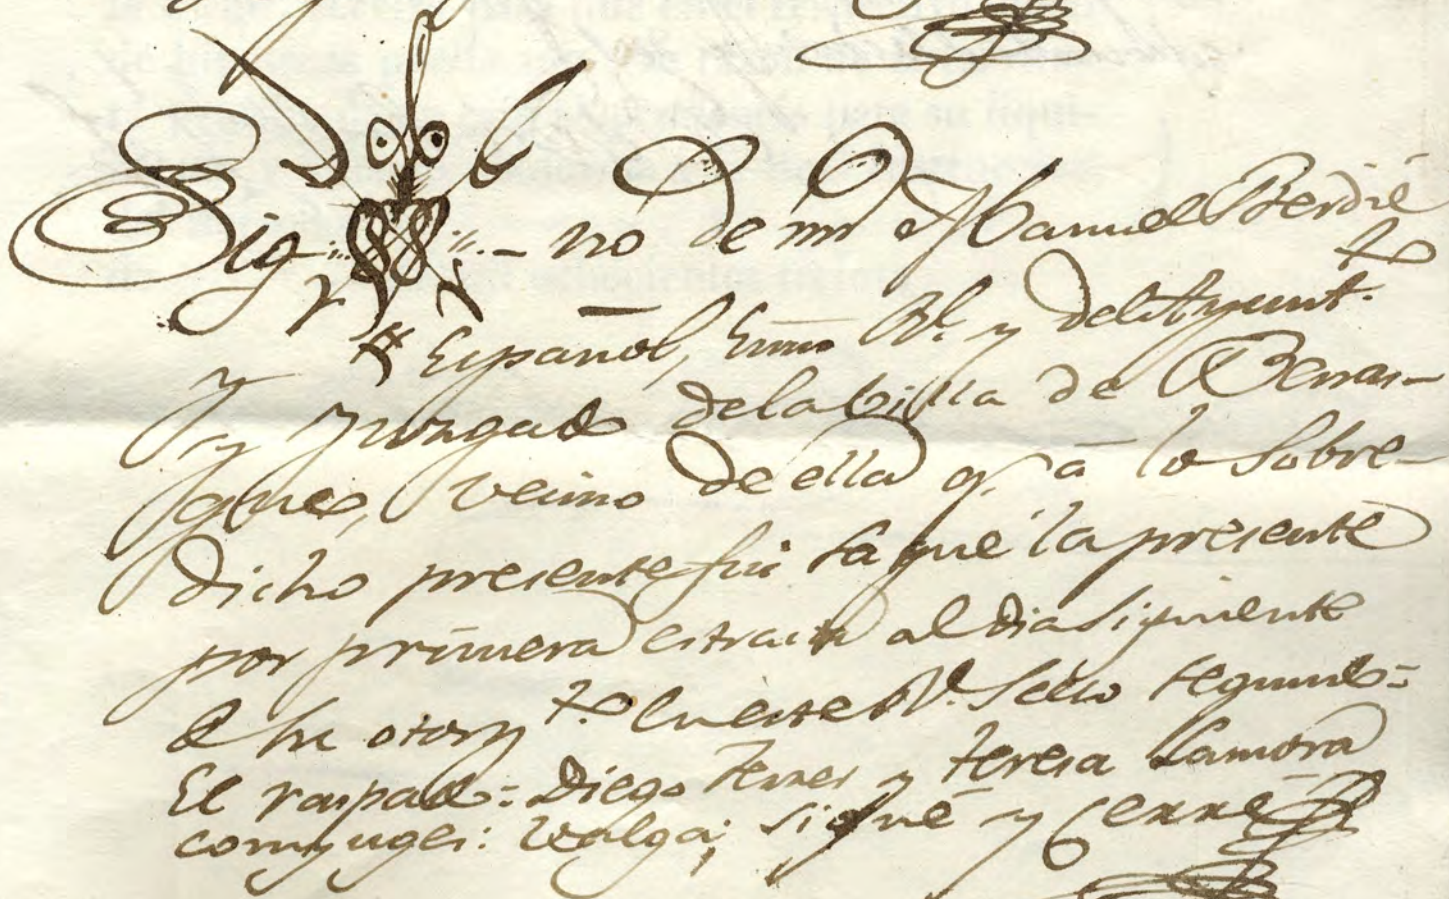 Sig no de mi Manuel Berdié
y Español, Essno Rl. y del Ayunt.to
y Juzgado dela billa de Benas-
que, vecino de ella q. â lo sobre-
dicho presente fui saqué la presente
por primera estracn al dia siguiente
de su otorg.to en este Rl. Sello segundo=
El raspado= Diego Ferrer y Teresa Lamora
conyuges: valga; signé y cerré